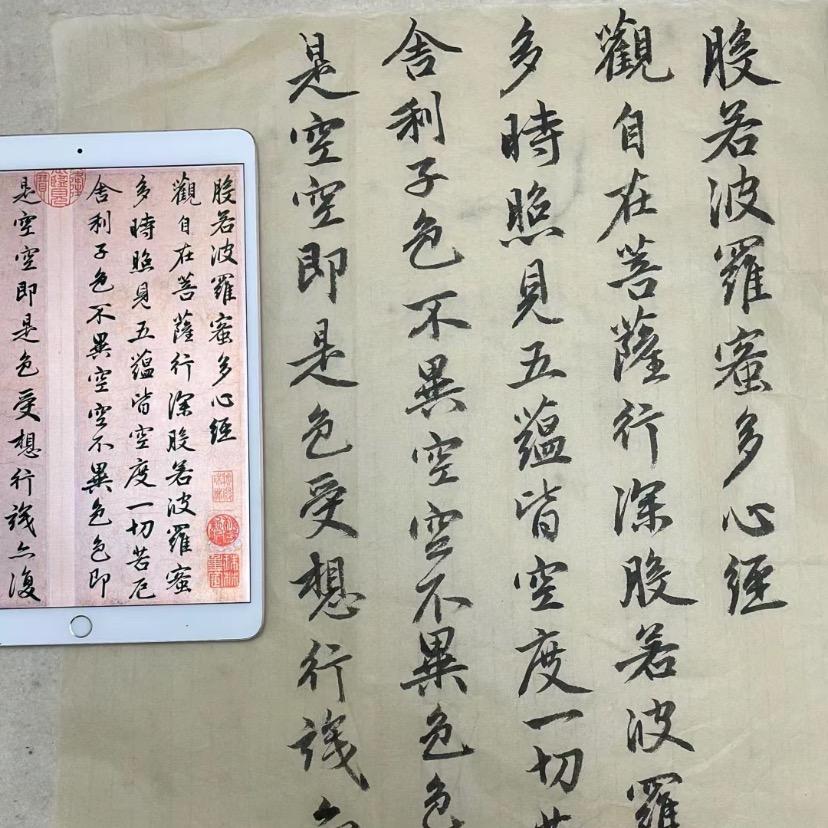 般若波羅蜜多心經
觀自在菩薩行深般若波羅
多時照見五蘊皆空度一切苦
舍利子色不異空空不異色色
是空空即是色受想行識亦
般若波羅蜜多心經
觀自在菩薩行深般若波羅蜜
多時照見五蘊皆空度一切苦厄
舍利子色不異空空不異色色即
是空空即是色受想行識亦復